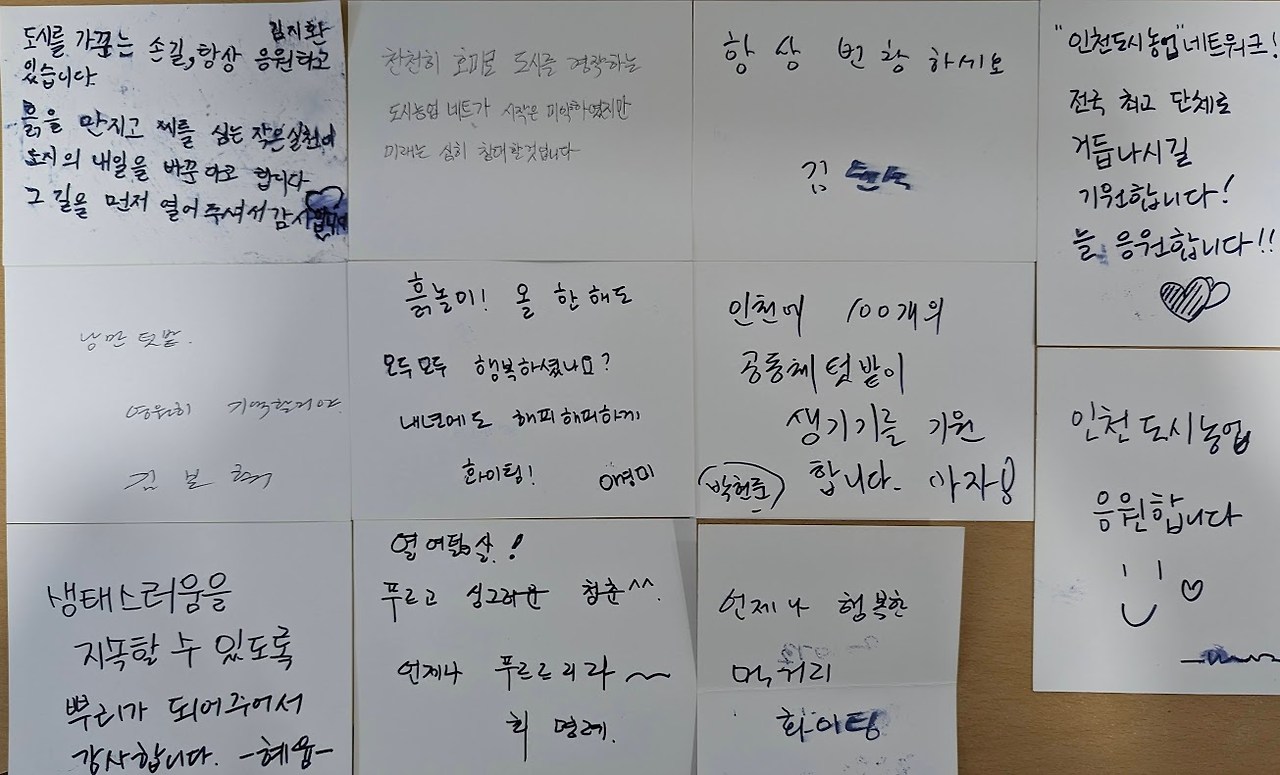 도시를 가꾸는 손길, 항상 응원하고
김지환
있습니다
흙을 만지고 씨를 심는 작은실천이
도시의 내일을 바꾼다고 합니다
그 길을 먼저 열어 주셔서 감사합니다
찬찬히 호미로 도시를 경작하는
도시농업 네트가 시작은 미약하였지만
미래는 심히 창대할것입니다
항상 번창하세요
김
"인천도시농업"네트워크!
전국 최고 단체로
거듭나시길
기원합니다!
늘 응원합니다!!
낭만 텃밭.
영원히 기억할거야.
김보
흙놀이! 올 한해도
모두모두 행복하셨나요?
내년에도 해피해피하게
화이팅!
인천에 100개의
공동체 텃밭이
생기기를 기원
합니다. 아자!
박현준
인천도시농업
응원합니다
생태스러움을
지속할 수 있도록
뿌리가 되어주어서
감사합니다. -혜용-
열여덟살!
푸르고 싱그러운 청춘^^.
언제나 푸르르리라~
최명례.
언제나 행복한
먹거리
화이팅